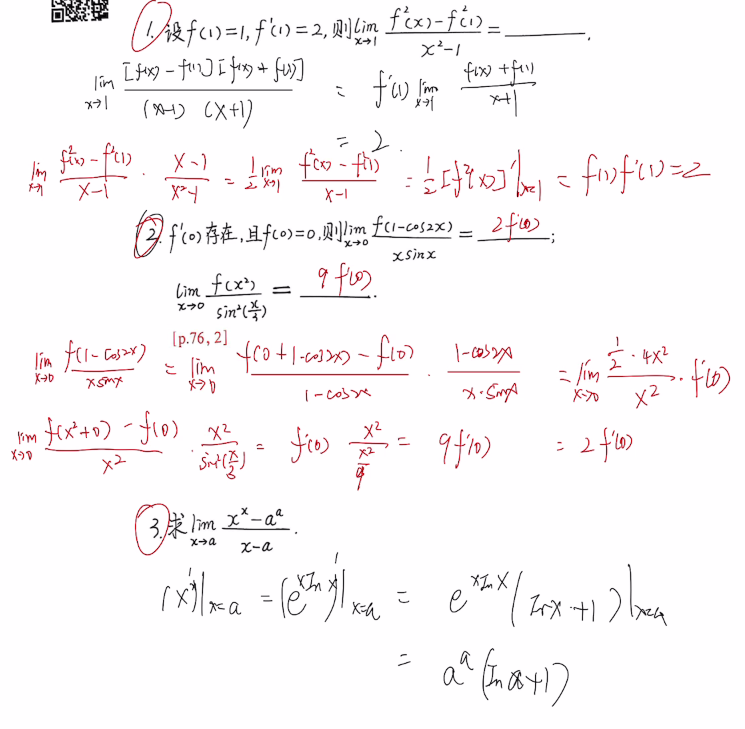 1. 设f(1)=1, f'(1)=2, 则lim_{x→1} (f²(x)-f²(1))/(x²-1) = ______.
lim_{x→1} [f(x)-f(1)][f(x)+f(1)]/((x-1)(x+1)) = f'(1) lim_{x→1} (f(x)+f(1))/(x+1)
= 2.
lim_{x→1} (f²(x)-f²(1))/(x-1) · (x-1)/(x²-1) = 1/2 lim_{x→1} (f²(x)-f²(1))/(x-1) = 1/2 [f²(x)]'|_{x=1} = f(1)f'(1)=2
2. f'(0)存在,且f(0)=0,则lim_{x→0} f(1-cos2x)/(x sinx) = 2f'(0);
lim_{x→0} f(x²)/sin²(x/3) = 9f'(0).
[p.76, 2]
lim_{x→0} f(1-cos2x)/(x sinx) = lim_{x→0} (f(0+1-cos2x)-f(0))/(1-cos2x) · (1-cos2x)/(x·sinx) = lim_{x→0} (1/2·4x²)/x² · f'(0)
lim_{x→0} (f(x²+0)-f(0))/x² · x²/sin²(x/3) = f'(0) x²/(x²/9) = 9f'(0) = 2f'(0)
3. 求lim_{x→a} (x^x-a^a)/(x-a).
(x^x)'|_{x=a} = (e^{xlnx})'|_{x=a} = e^{xlnx}(lnx+1)|_{x=a}
= a^a(lna+1)